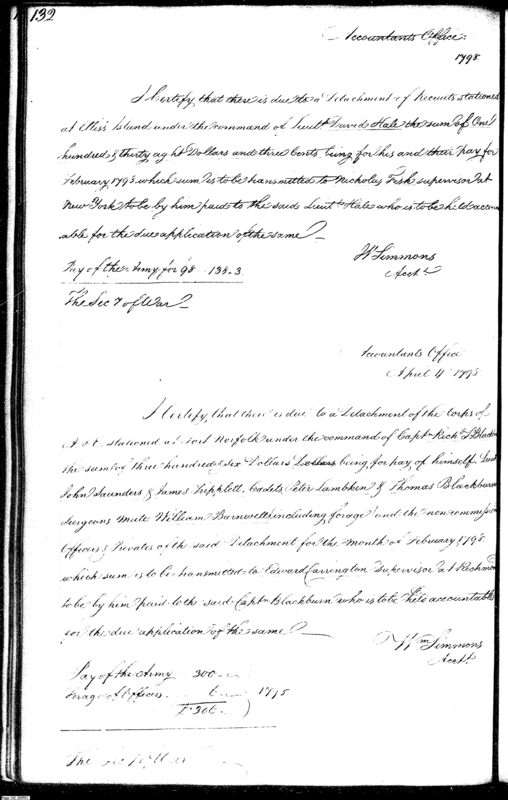 132
Accountants Office
1798
I Certify, that there is due to a Detachment of Recruits stationed
at Ellis's Island under the command of Lieutt. David Hale the sum of One
hundred & thirty eight Dollars and three Cents being for his and their pay for
February 1798 which sum is to be transmitted to Nicholas Fish supervisor at
New York to be by him paid to the said Lieutt. Hale who is to be held account
able for the due application of the same
Wm Simmons
Acctt.
Pay of the Army for 98 .. 138.3
The Secy of War
Accountants Office
April 4 1798
I Certify, that there is due to a Detachment of the Corps of
A & E stationed at Fort Norfolk under the command of Captn. Richd. S Blackburn
the sum of three hundred & six Dollars Dollars being for pay of himself Lieut
John Saunders & James Tripplett, Cadets Peter Lambkin & Thomas Blackburn
Surgeons Mate William Barnwell, including forage and the non commission
Officers & Privates of the said Detachment for the month of February 1798
which sum is to be transmitted to Edward Carrington Supervisor at Richmond
to be by him paid to the said Captn Blackburn who is to be held accountable
for the due application of the same
Wm Simmons
Acctt.
Pay of the Army 300
Forage of Officers 6 1798
$ 306
The Secy of War